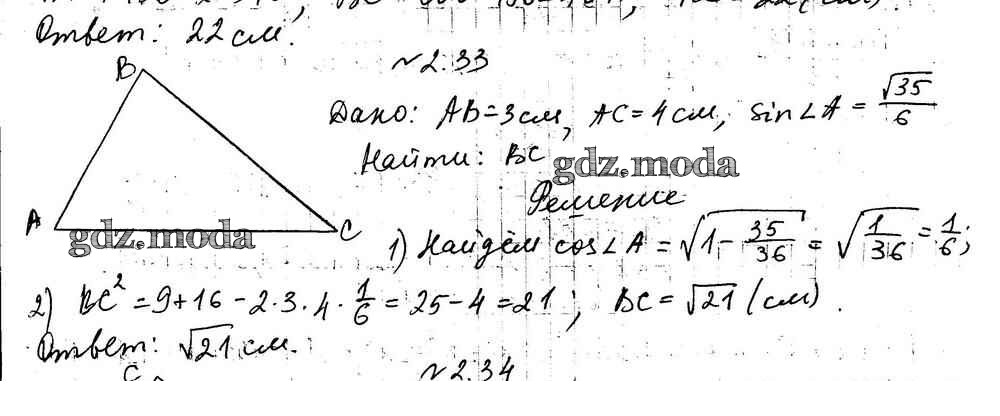 Ответ: 22 см.
№2.33
B
Дано: AB=3см, AC=4см, sin∠A = √35/6
Найти: BC
gdz.moda
Решение
A
C
gdz.moda
1) Найдём cos∠A = √(1 - 35/36) = √(1/36) = 1/6;
2) BC² = 9+16-2·3·4·1/6 = 25-4 = 21; BC = √21 (см).
Ответ: √21 см.
C
№2.34